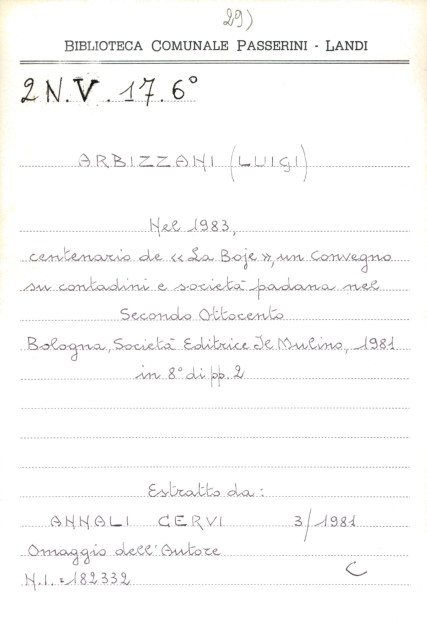 29)
BIBLIOTECA COMUNALE PASSERINI - LANDI
2 N.V. 17. 6°
ARBIZZANI (LUIGI)
Nel 1983,
centenario de «La Boje», un Convegno
su contadini e società padana nel
Secondo Ottocento
Bologna, Società Editrice Il Mulino, 1981
in 8° di pp. 2
Estratto da:
ANNALI CERVI 3/1981
Omaggio dell'Autore
N.I. = 182332
C